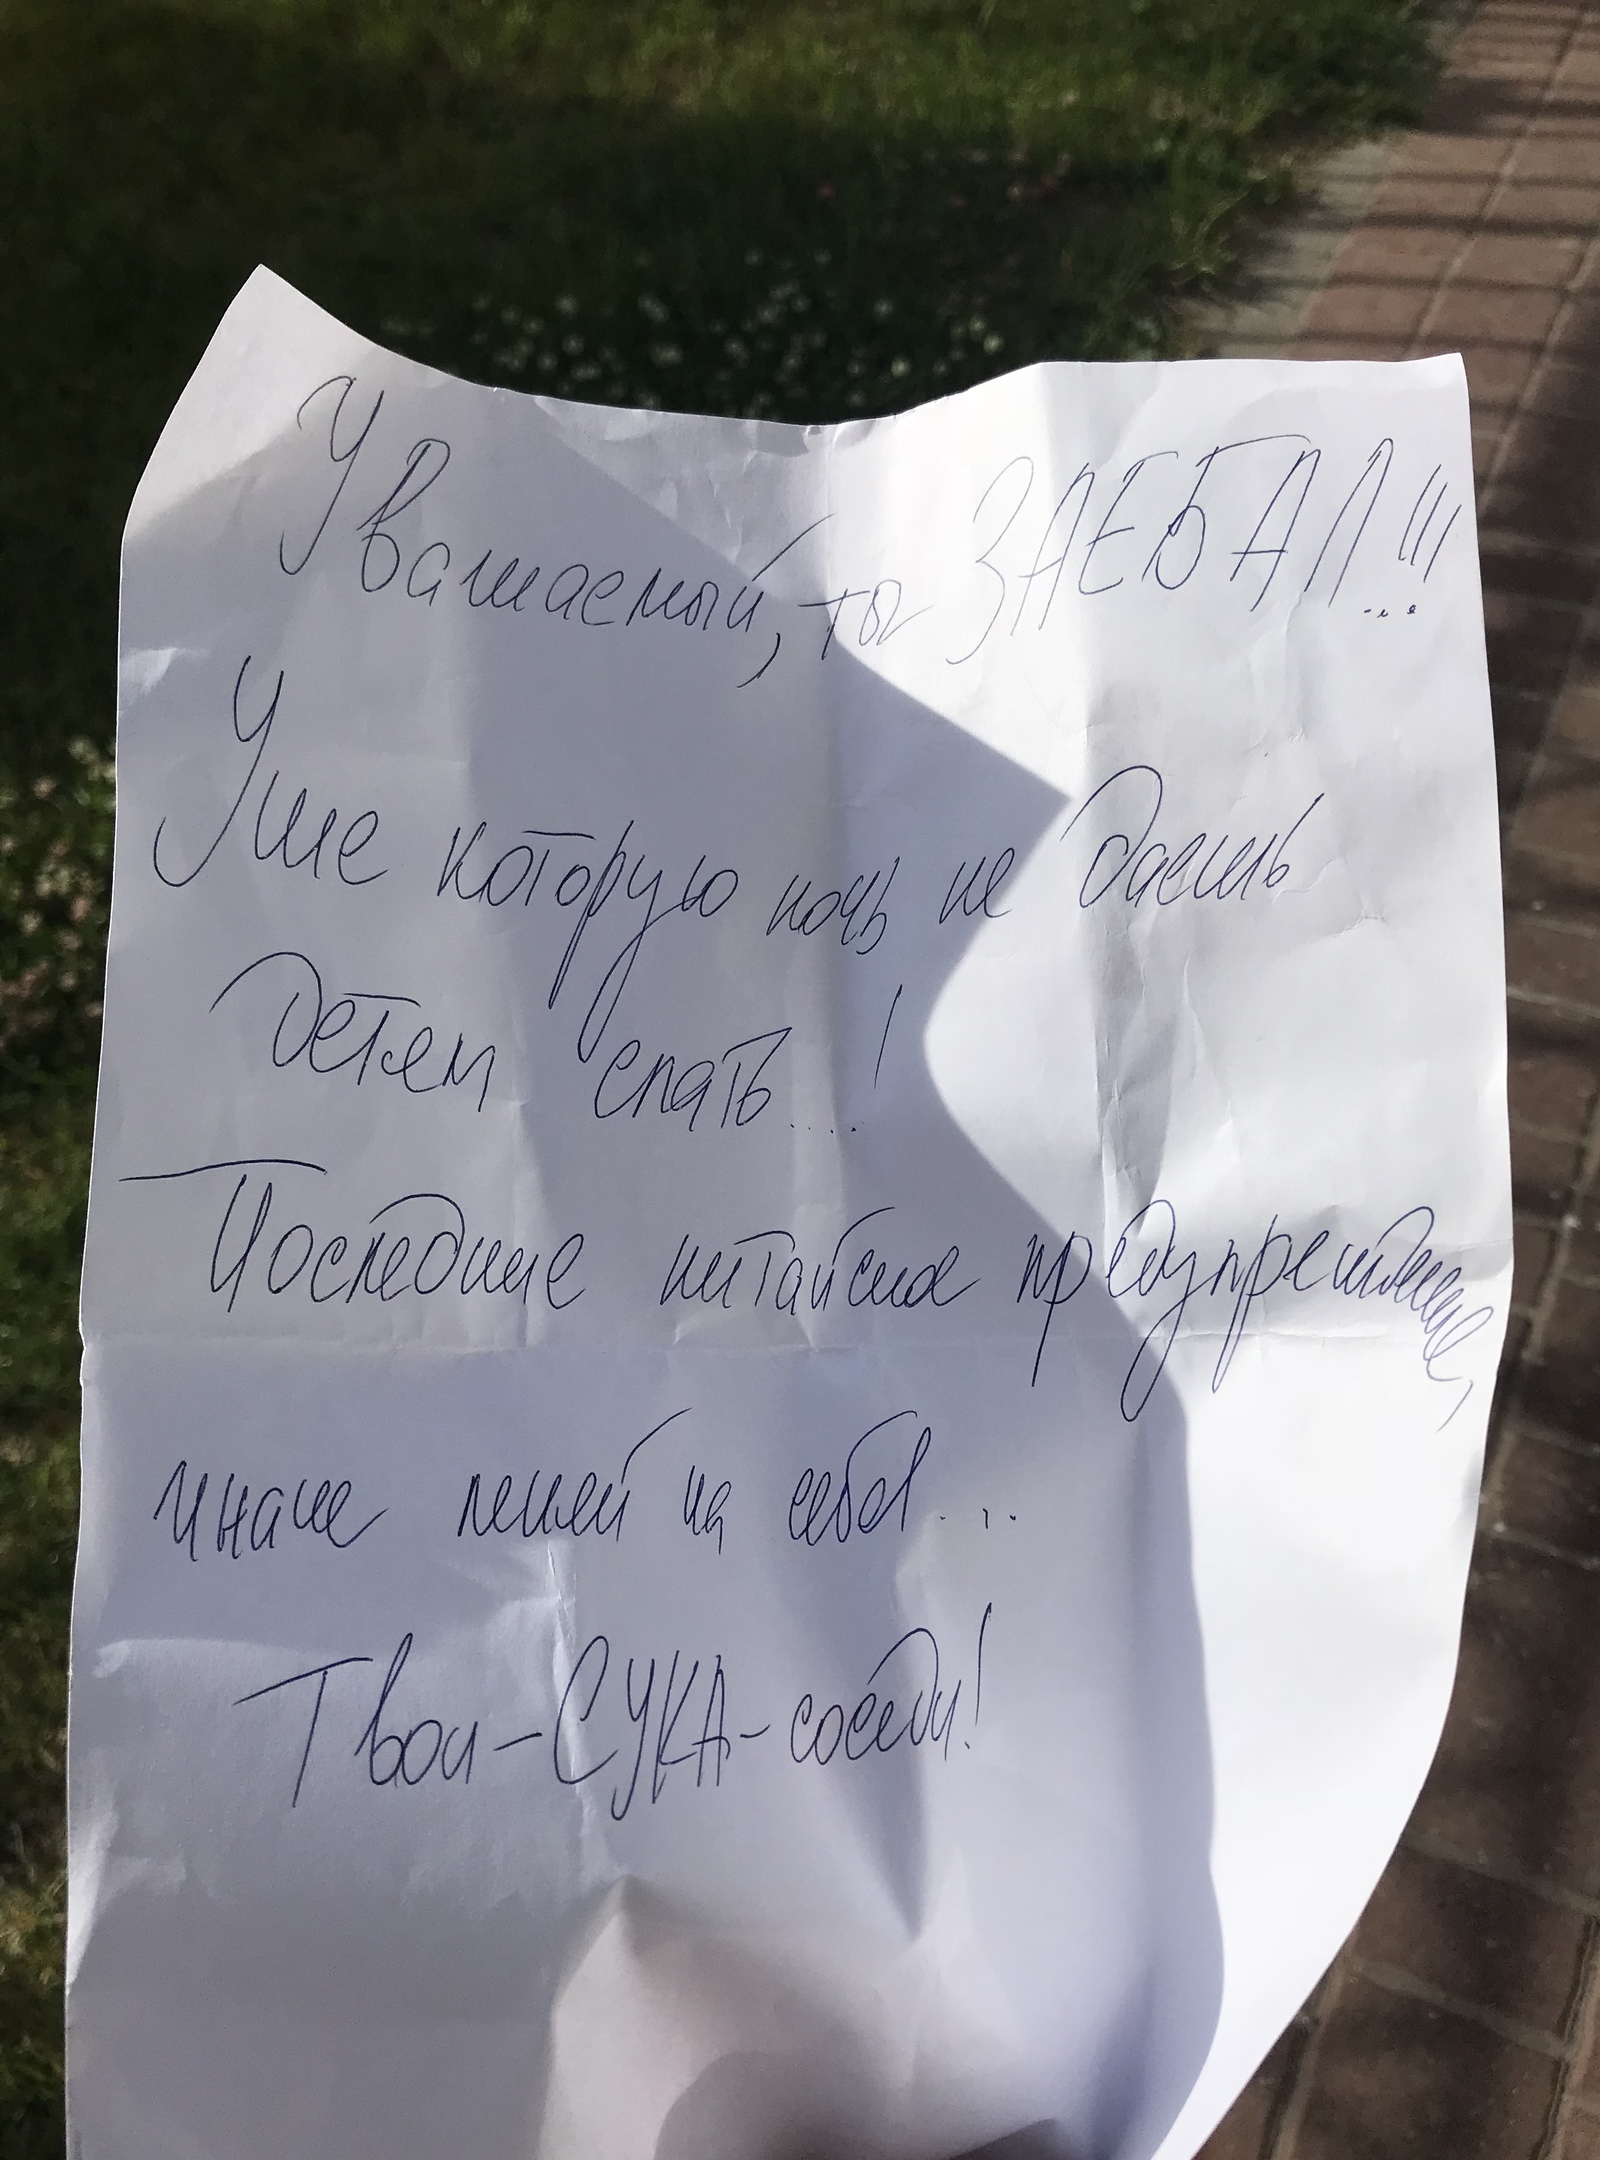 Уважаемый, ты ЗАЕБАЛ!!!
Уже которую ночь не даешь
детям спать....!
Последние китайское предупреждение,
иначе пеняй на себя...
Твои-СУКА-соседи!